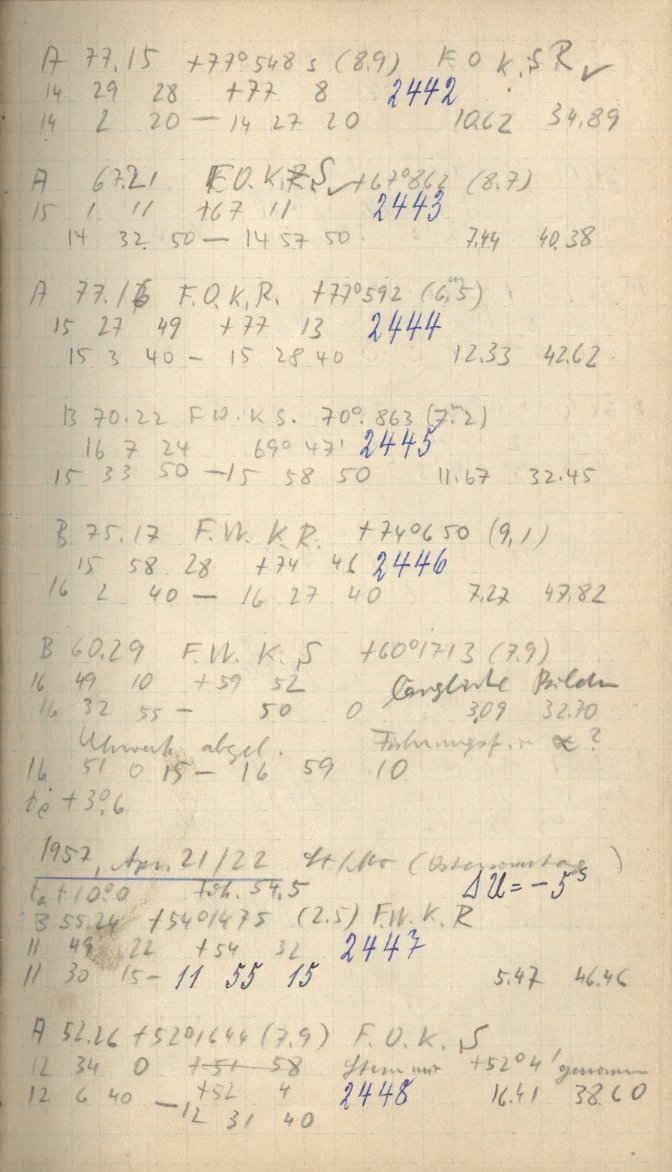 A 77.15 +77°548 s (8.9) F. O K, S R ✓
14 29 28 +77 8 2442
14 2 20 — 14 27 20 10.62 34.89
A 67.21 F.O.K.R.S ✓ +67°862 (8.7)
15 1 11 +67 11 2443
14 32 50 — 14 57 50 7.44 40.38
A 77.16 F.O.K,R. +77°592 (6,m5)
15 27 49 +77 13 2444
15 3 40 — 15 28 40 12.33 42.62
B 70.22 F.W.K S. 70°.863 (7.m2)
16 7 24 69° 47' 2445
15 33 50 — 15 58 50 11.67 32.45
B 75.17 F.W. K R. +74°650 (9,1)
15 58 28 +74 46 2446
16 2 40 — 16 27 40 7.27 47.82
B 60.29 F.W. K. S +60°1713 (7.9)
16 49 10 +59 52 Längliche Bilder
16 32 55 — 50 0 3,09 32.70
Uhrwerk abgel. ?
16 51 0 15 — 16 59 10
+3°.6
1957, Apr. 21/22 (Ostersonntag)
ta +10°.0 54.5 ΔU = -5s
B 55.24 +54°1475 (2.5) F.W. K. R
11 49 22 +54 32 2447
11 30 15 — 11 55 15 5.47 46.46
A 52.26 +52°1644 (7.9) F. O. K. S
12 34 0 +51 58 Stern mit +52°4' genommen
12 6 40 — +52 4 2448 16.41 38.60
12 31 40